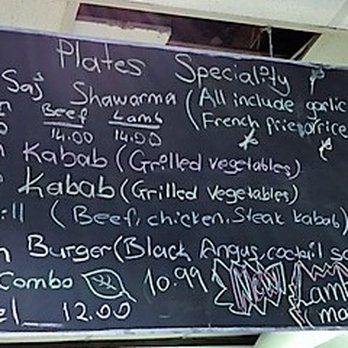 Plates Speciality
Saj Shawarma (All include garlic
Beef Lamb French fries or rice
14.00 14.00
Kabab (Grilled vegetables)
Kabab (Grilled vegetables)
(Beef, chicken, Steak kabab)
Burger (Black Angus, coctail
Combo 10.99 New Lamb
12.00